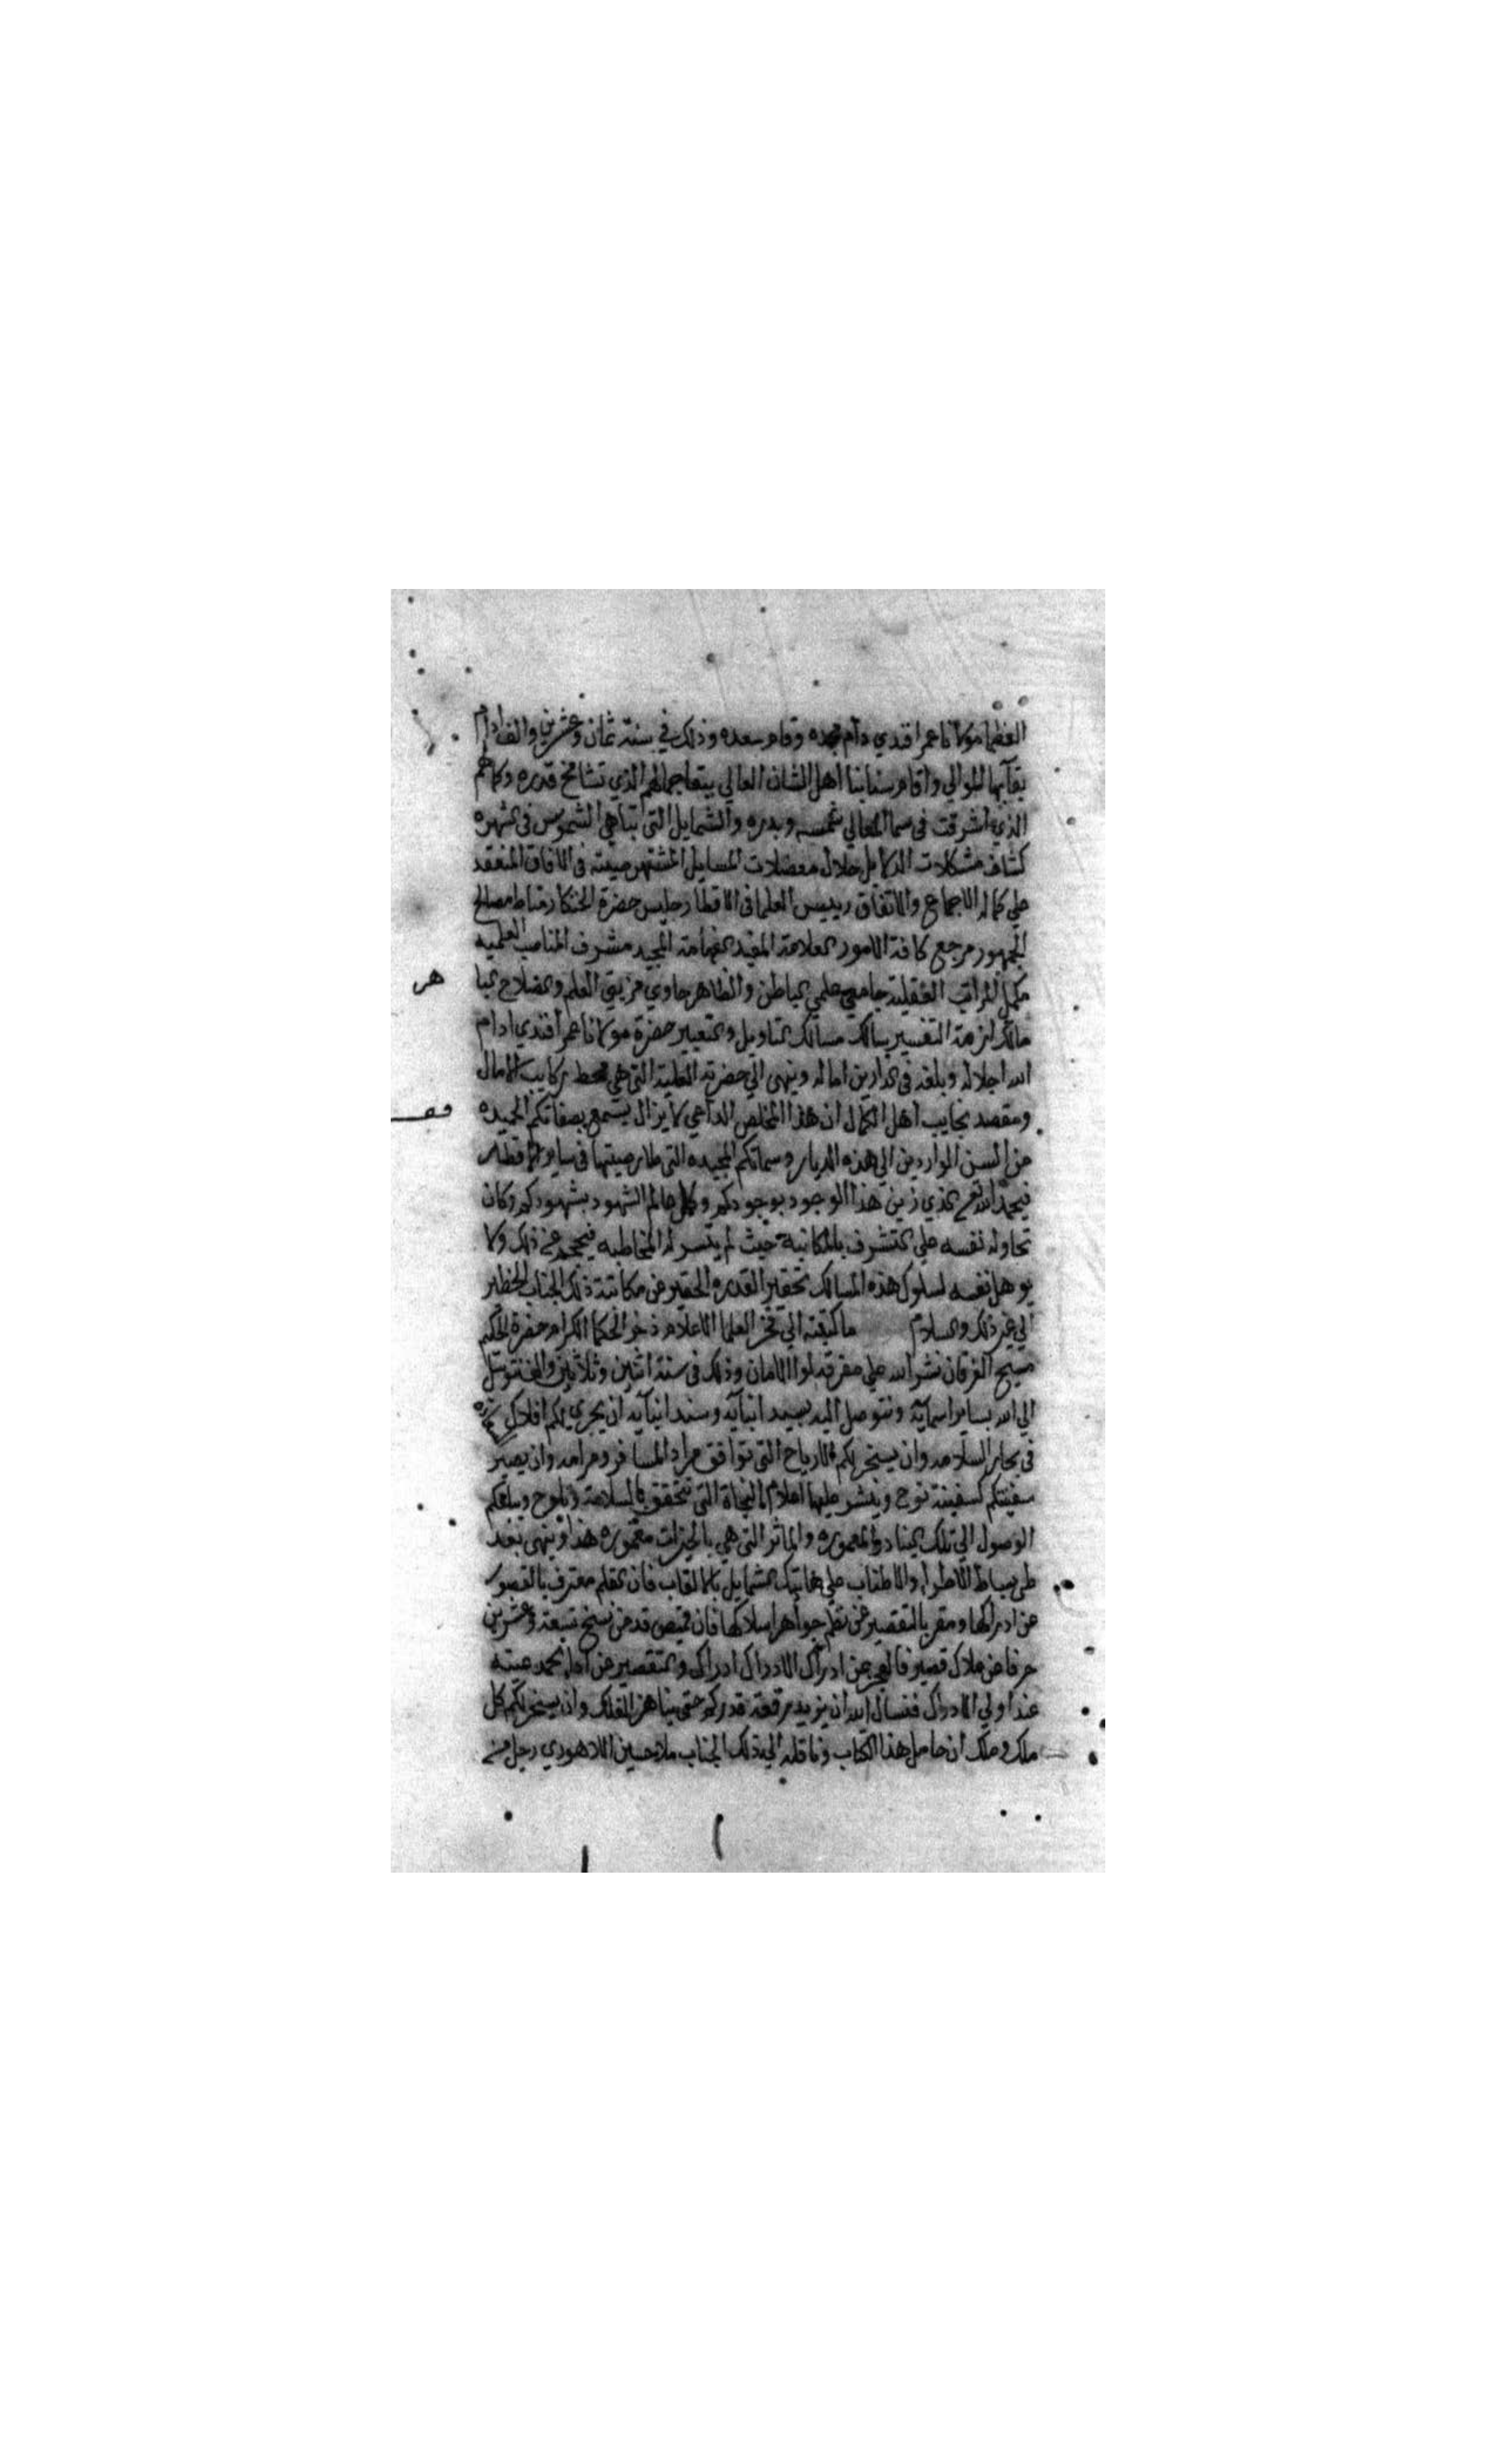 العظام مولانا عمر افندي دام مجده وقام سعده وذلك في سنة ثمان وعشرين والف ادام
بقآيها للموالي واقام سنا بنا اهل الشان العالي ببقا جمالهم الذي تشامخ قدره وكمالهم
الذي اشرقت في سما المعالي شمسه وبدره والشمايل التي تباهي الشموس في شهره
كشاف مشكلات الدلايل حلال معضلات المسايل المشتهر صيته في الافاق المنعقد
علي كماله الاجماع والاتفاق رييس العلما في الاقطار جليس حضرة الخنكار مناط مصالح
الجمهور مرجع كافة الامور العلامة المفيد الفهامة المجيد مشرف المناصب العلميه
مكمل المراتب العقلية جامع علمي الباطن والظاهر حاوي مزيتي العلم والصلاح البا
هر
مالك ازمة التفسير سالك مسالك التاويل والتعبير حضرة مولانا عمر افندي ادام
الله اجلاله وبلغه في الدارين اماله وينهي الي حضرته العلية التي هي محط ركايب الامال
ومقصد نجايب اهل الكمال ان هذا المخلص الداعي لا يزال يستمع بصفاتكم الحميده
من السن الواردين الي هذه الديار وسماتكم المجيده التي طار صيتها في ساير الاقطار
فيحمد الله تعالي الذي زين هذا الوجود بوجودكم وكمل عالم الشهود بشهودكم وكان
تحاوله نفسه علي التشرف بالمكاتبة حيث لم يتسر له المخاطبه فيحجم عن ذلك ولا
يوهل نفسه لسلوك هذه المسالك تحقيرا لقدره الحقير عن مكاتبة ذلك الجناب الخطير
الي غير ذلك والسلام ما كتبته الي فخر العلما الاعلام ذخر الحكما الكرام حضرة الحكيم
مسيح الفرقان نشر الله علي مفرقه لوا الامان وذلك في سنة اثنين وثلاثين والف نتوسل
الي الله بساير اسمايه ونتوصل اليه بسيد انبيآيه وسند انبيآيه ان يجري لكم افلاك
في بحار السلامه وان يسخر لكم الارياح التي توافق مراد المسافر ومرامه وان يصير
سفينتكم كسفينة نوح وينشر عليها اعلام النجاة التي تخفق بالسلامة وتلوح ويبلغكم
الوصول الي تلك البنادر المعموره والماثر التي هي بالخيرات مغموره هذا وينهي بعد
طي بساط الاطراء والاطناب علي هاتيك الشمايل بالالقاب فان القلم معترف بالقصور
عن ادراكها ومقر بالتقصير عن نظم جواهر اسلاكها فان قميص قد من نسخ تسعة وعشرين
حرفا عن علاك قصير فالعجز عن ادراك الادراك ادراك والتقصير عن
عند اولي الادراك فنسال الله ان يزيد رفعة قدركم حتي يناهز الفلك وان يسخر لكم كل
ملك وملك ان حامل هذا الكتاب وناقله الي ذلك الجناب ملا حسين اللاهوري رجل من